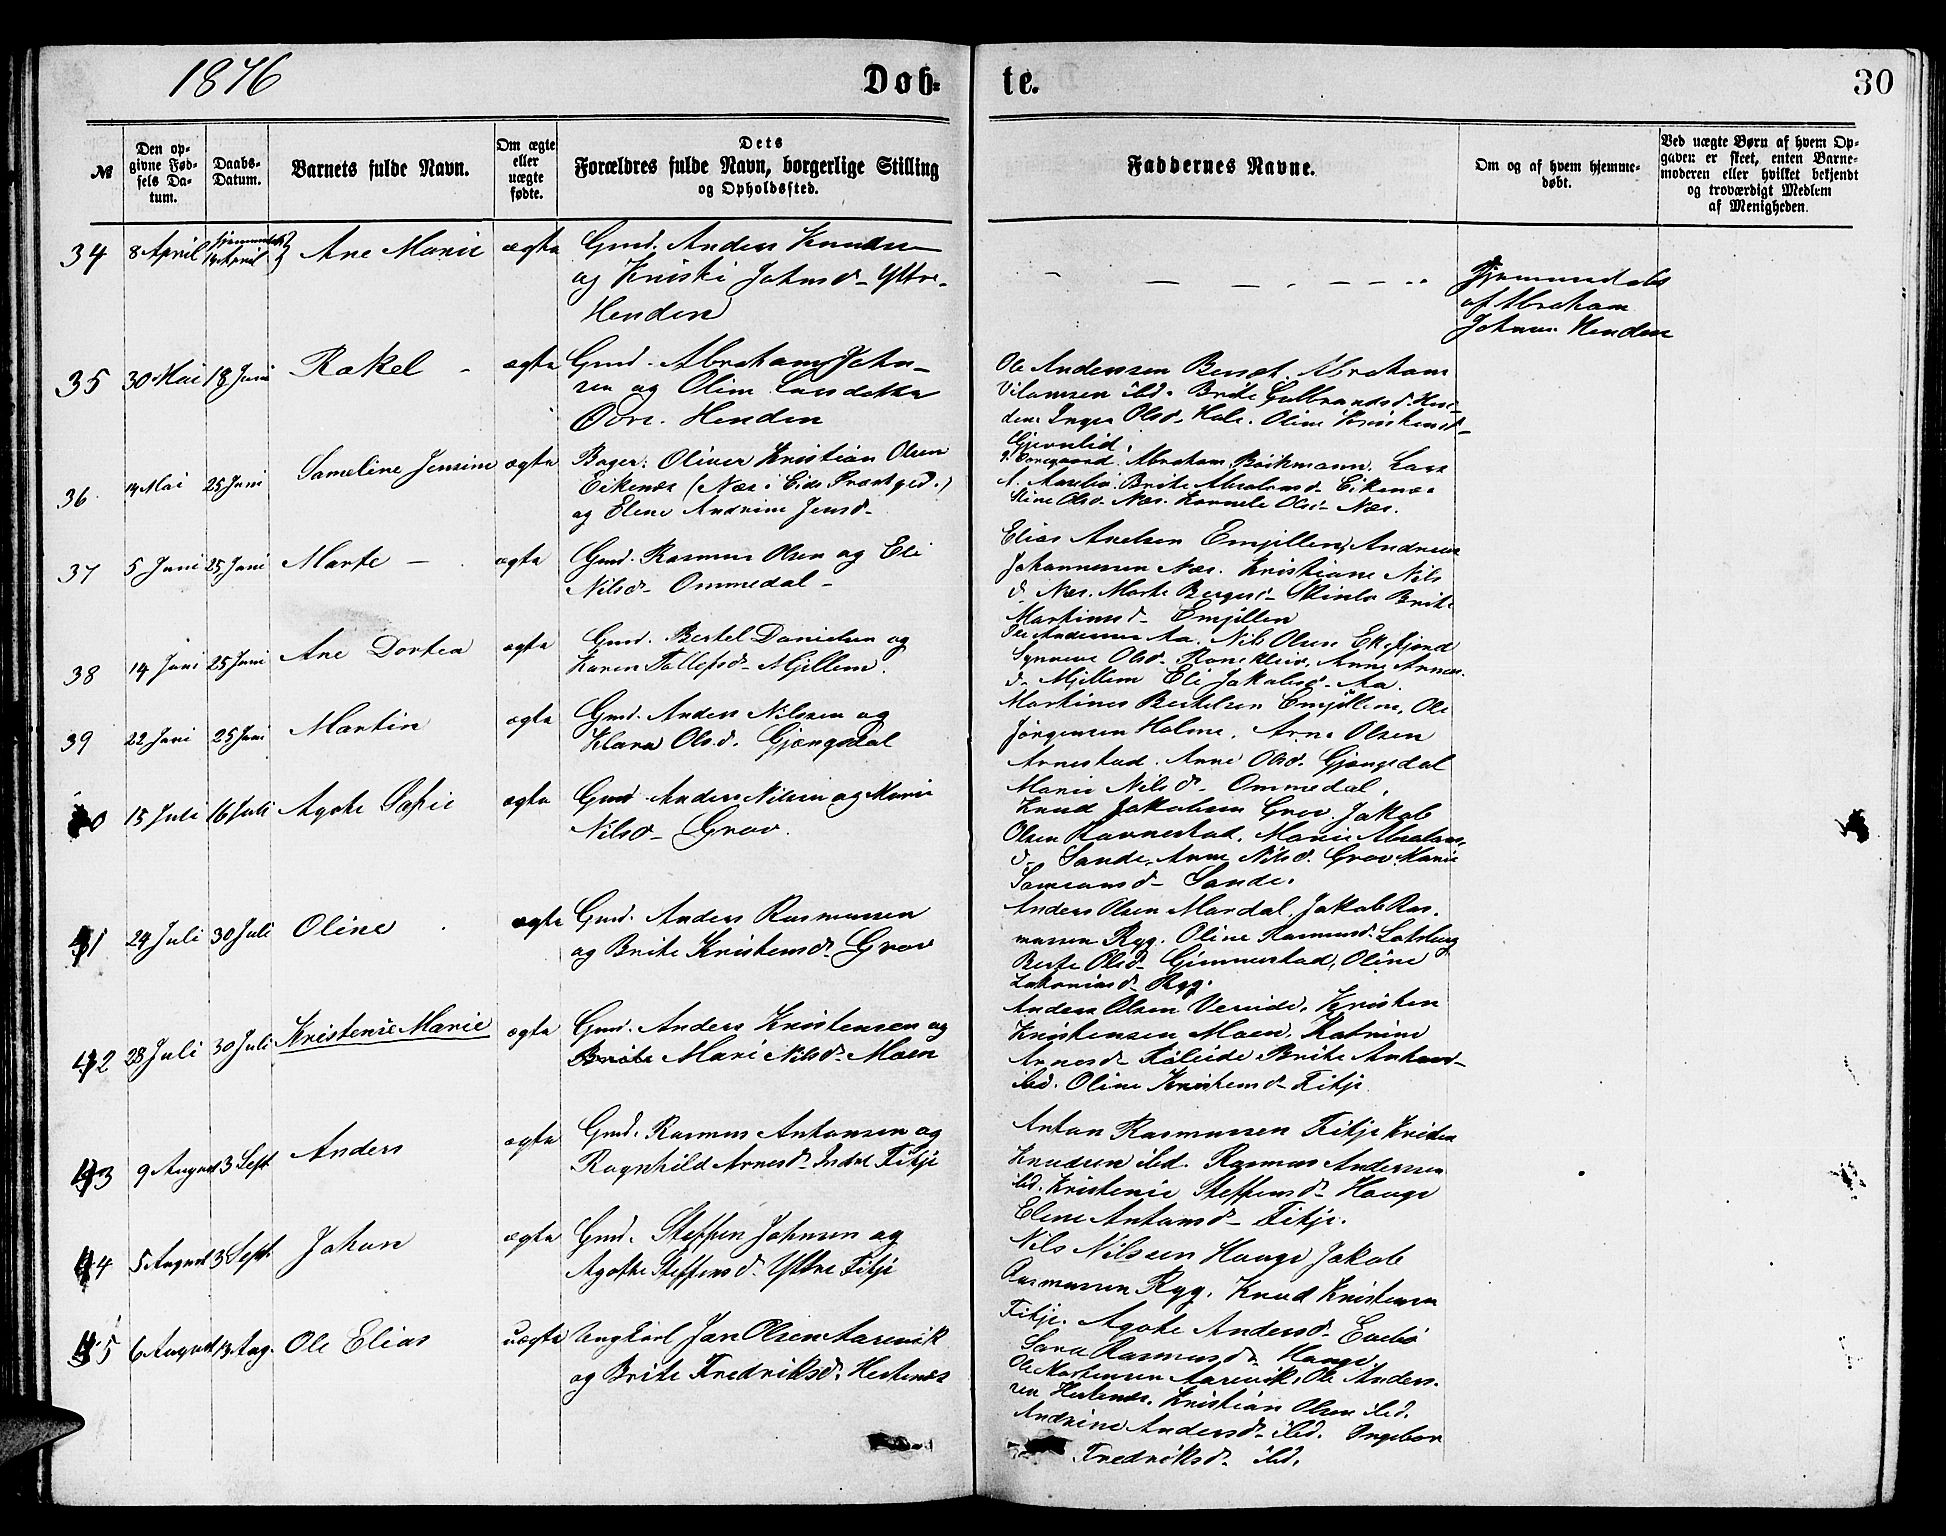 1876
Døb-
te.
30
№
Den op-
givne Fød-
sels Da-
tum.
Daabs-
Datum.
Barnets fulde Navn.
Om ægte
eller
uægte
fødte.
Dets
Forældres fulde Navn, borgerlige Stilling
og Opholdssted.
Faddernes Navne.
Om og af hvem hjemme-
døbt.
Ved uægte Børn af hvem Op-
gaven er skeet, enten Barne-
moderen eller hvilket bekjendt
og troværdigt Medlem
af Menigheden.
34 8 April 14 April Ane Marie ægte Gmd. Anders Knudsen
og Kristi Johnsd. Ytre-
Henden
Hjemmedøbt
af Abraham
Johnsen Henden
35 30 Mai 18 Juni Rakel - ægte Gmd. Abraham John-
sen og Oline Larsdatter
Øvre. Henden
Ole Anderssen Abraham
Vilumsen ibd. Brite Gulbrandsd. Hen-
den Inger Olsd. Hole. Oline Kristensd-
Gjernlid.
36 14 Mai 25 Juni Sameline Jensine ægte Bager. Oliver Kristian Olsen
Eikenæs (Næs i Eids Præstgjed.)
og Elene Andrine Jensd-
Abraham Böckmann. Lars
Brite Abrahamsd- Eikenæs
Stine Olsd- Næs. Kornele Olsd- Næs.
37 5 Juni 25 Juni Marte - ægte Gmd. Rasmus Olsen og Eli
Nilsd- Ommedal -
Elias Andersen Emjellen, Andreas
Johannessen Næs. Kristiane Nils
d. Næs. Marte Brite
Martinusd- Emjellen
38 14 Juni 25 Juni Ane Dortea ægte Gmd. Bertel Danielsen og
Karen Tollefsd- Mjellem.
Ole Anderssen Aa. Nils Olsen
Synneve Olsd- Anne Arnes-
d- Mjellem Eli Jakobsd- Aa.
39 22 Juni 25 Juni Martin ægte Gmd. Anders Nilssen og
Klara Olsd. Gjængedal
Martines Bertelsen Emjellem, Ole
Jörgensen Holme. Arne Olsen
Arnestad. Anne Olsd. Gjengedal
Marie Nilsd- Ommedal.
40 15 Juli 16 Juli Agote Sofie ægte Gmd Anders Nilsen og Marie
Nilsd- Grov.
Knud Jakobsen Grov. Jakob
Olsen Ravnestad. Marie Abrahams-
d- Sande. Anne Nilsd. Grov. Marie
Samsonsd- Sande.
41 24 Juli 30 Juli Oline ægte Gmd. Anders Rasmussen
og Brite Kristensd- Grov
Anders Olsen Mardal, Jakob Ras-
mussen Ryg. Oline Rasmusd.
Berte Olsd- Gimmestad, Oline
Zakoriasd- Ryg.
42 28 Juli 30 Juli Kristense Marie ægte Gmd. Anders Kristensen og
Brite Mari Nilsd- Moen
Anders Olsen Vereide. Kristen
Kristensen Moen. Katrine
Arnesd- Röleide Brite Antons-
ibd. Oline Kristensd- Fitje
43 9 August 3 Sept Anders ægte Gmd. Rasmus Antonsen og
Ragnhild Arnesd- Indre Fitje
Anton Rasmussen Fitje Kristen
Knudsen ibd. Rasmus Anderssen
ibd. Kristense Steffensd- Hauge
Elene Antonsd- Fitje.
44 5 August 3 Sept Johan ægte Gmd. Steffen Johnsen og
Agothe Steffensd. Ytre Fitje
Nils Nilssen Hauge Jakob
Rasmussen Ryg, Knud Kristensen
Fitje. Agote Andersd- Evebö
Sara Rasmusd- Hauge
45 6 August 13 Aug. Ole Elias uægte Ungkarl Jan Olsen Aarevik
og Brite Fredriksd- Hestenes
Ole Mortensen Aarevik. Ole Anders-
sen Hestenes. Kristian Olsen ibd.
Andrine Andersd- ibd. Ingebor
Fredriksd- ibd.